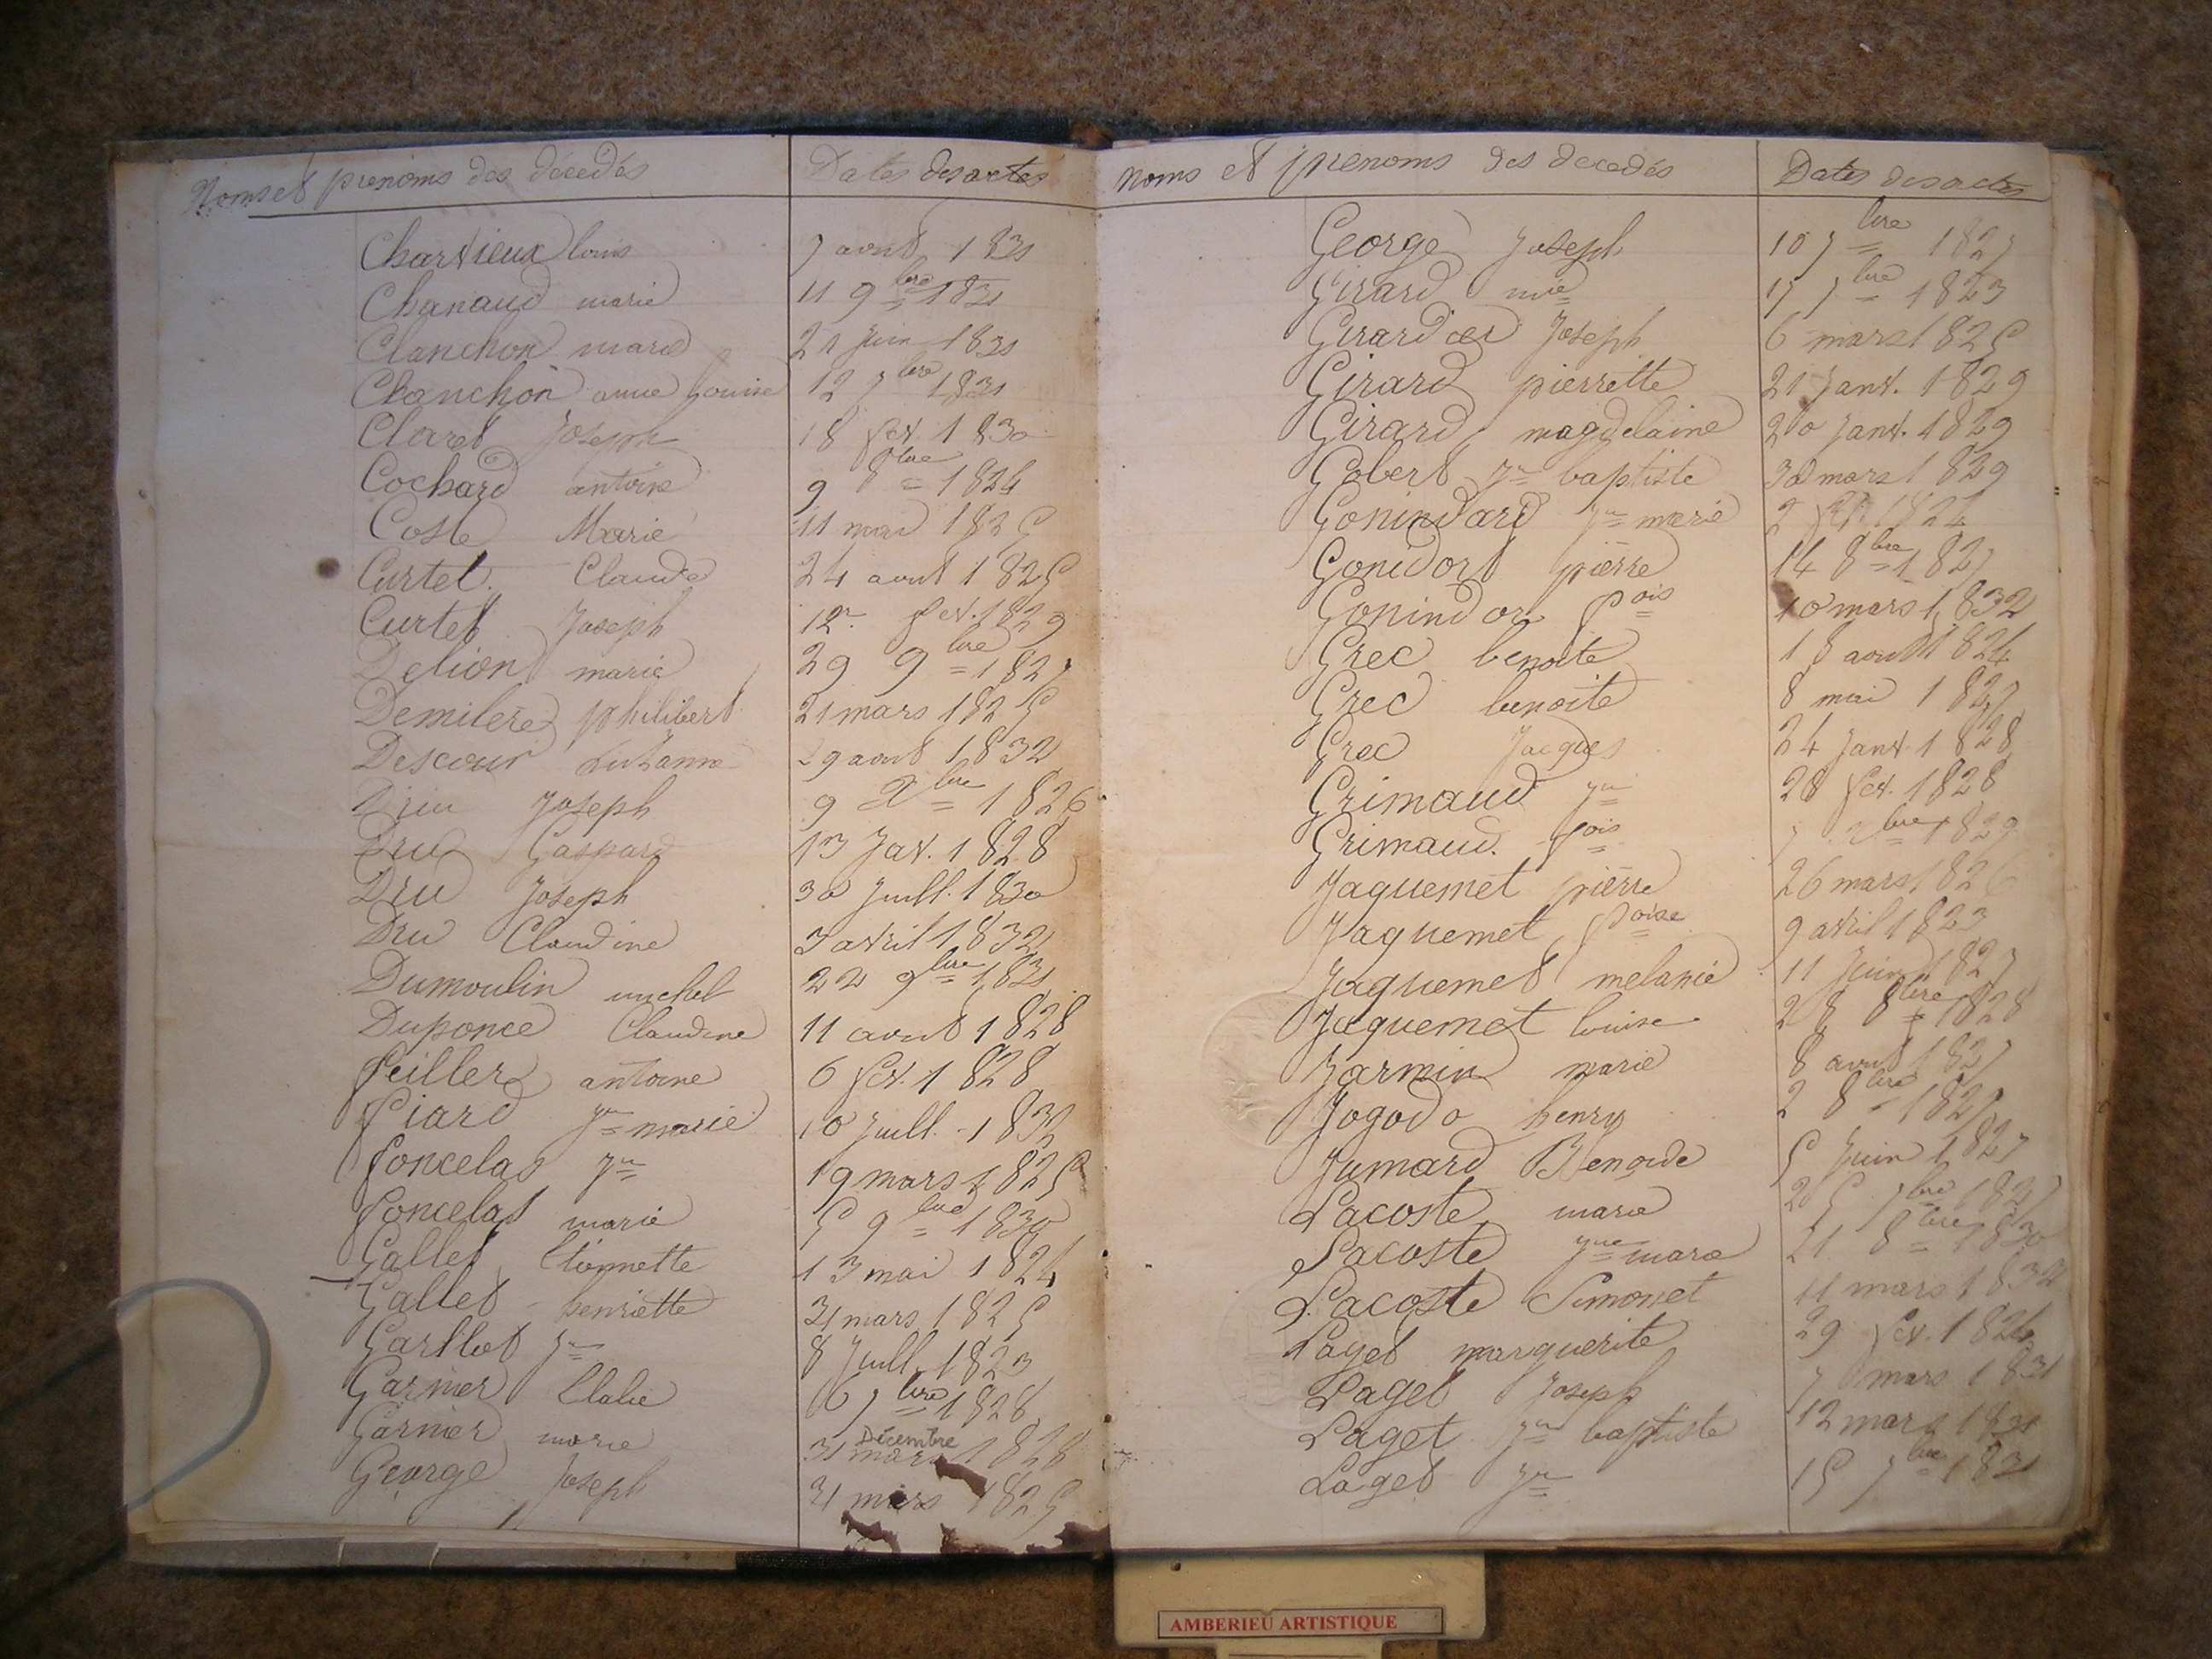 Noms et prenoms des décédés Dates des actes
Charvieux louis 7 aout 1831
Chanaud marie 11 9bre 1831
Clanchon marie 21 Juin 1831
Clanchon anne Louise 12 7bre 1831
Claret Joseph 18 fev. 1830
Cochard antoine 9 8bre 1824
Coste Marie 11 mai 1825
Curtet Claude 24 aout 1825
Curtet Joseph 12 fev. 1829
Delion marie 29 9bre 1827
Demilere philibert 21 mars 1825
Descour suzanne 29 aout 1832
Joseph 9 bre 1826
Dru Gaspard 13 Jav. 1828
Dru Joseph 30 Juill. 1830
Dru Claudine 3 avril 1832
Dumoulin michel 22 9bre 1831
Duponce Claudine 11 aout 1828
feiller antoine 6 fev. 1828
fiard Jn marie 10 Juill. 1832
foncelas Jn 19 mars 1825
foncelas marie 5 9bre 1830
Gallet Etiennette 13 mai 1824
Gallet henriette 31 mars 1825
Garllot Jn 8 Juill. 1823
Garnier Clalie 6 7bre 1828
Garnier marie 31 mars Décembre 1828
George Joseph 31 mars 1825
noms et prenoms des decedés Dates des actes
George Joseph 10 7bre 1827
Girard mie 17 7bre 1823
Girardier Joseph 6 mars 1825
Girard pierrette 21 Janv. 1829
Girard magdelaine 20 Janv. 1829
Gobert Jn baptiste 30 mars 1829
Gonindard Jn marie 2 1824
Gonidort pierre 14 8bre 1827
Gonindor fois 10 mars 1832
Grec benoite 18 aout 1824
Grec benoite 8 mai 1827
Grec Jacques 24 Janv. 1828
Grimaud Jn 28 fev. 1828
Grimaud. fois 7 bre 1829
Jaquemet pierre 26 mars 1826
Jaquemet foise 9 avril 1823
Jaquemet melanie 11 Juin 1827
Jaquemet louise 28 8bre 1828
Jarmin marie 8 aout 1827
Jogodo henry 2 8bre 1827
Jumard Benoide 5 Juin 1827
Lacoste marie 25 7bre 1827
Lacoste Jne marie 21 8bre 1830
Lacoste Simonet 11 mars 1832
Laget marguerite 29 fev. 1824
Laget Joseph 7 mars 1831
Laget Jn baptiste 12 mars 1831
Laget Jn 15 7bre 1831
AMBERIEU ARTISTIQUE